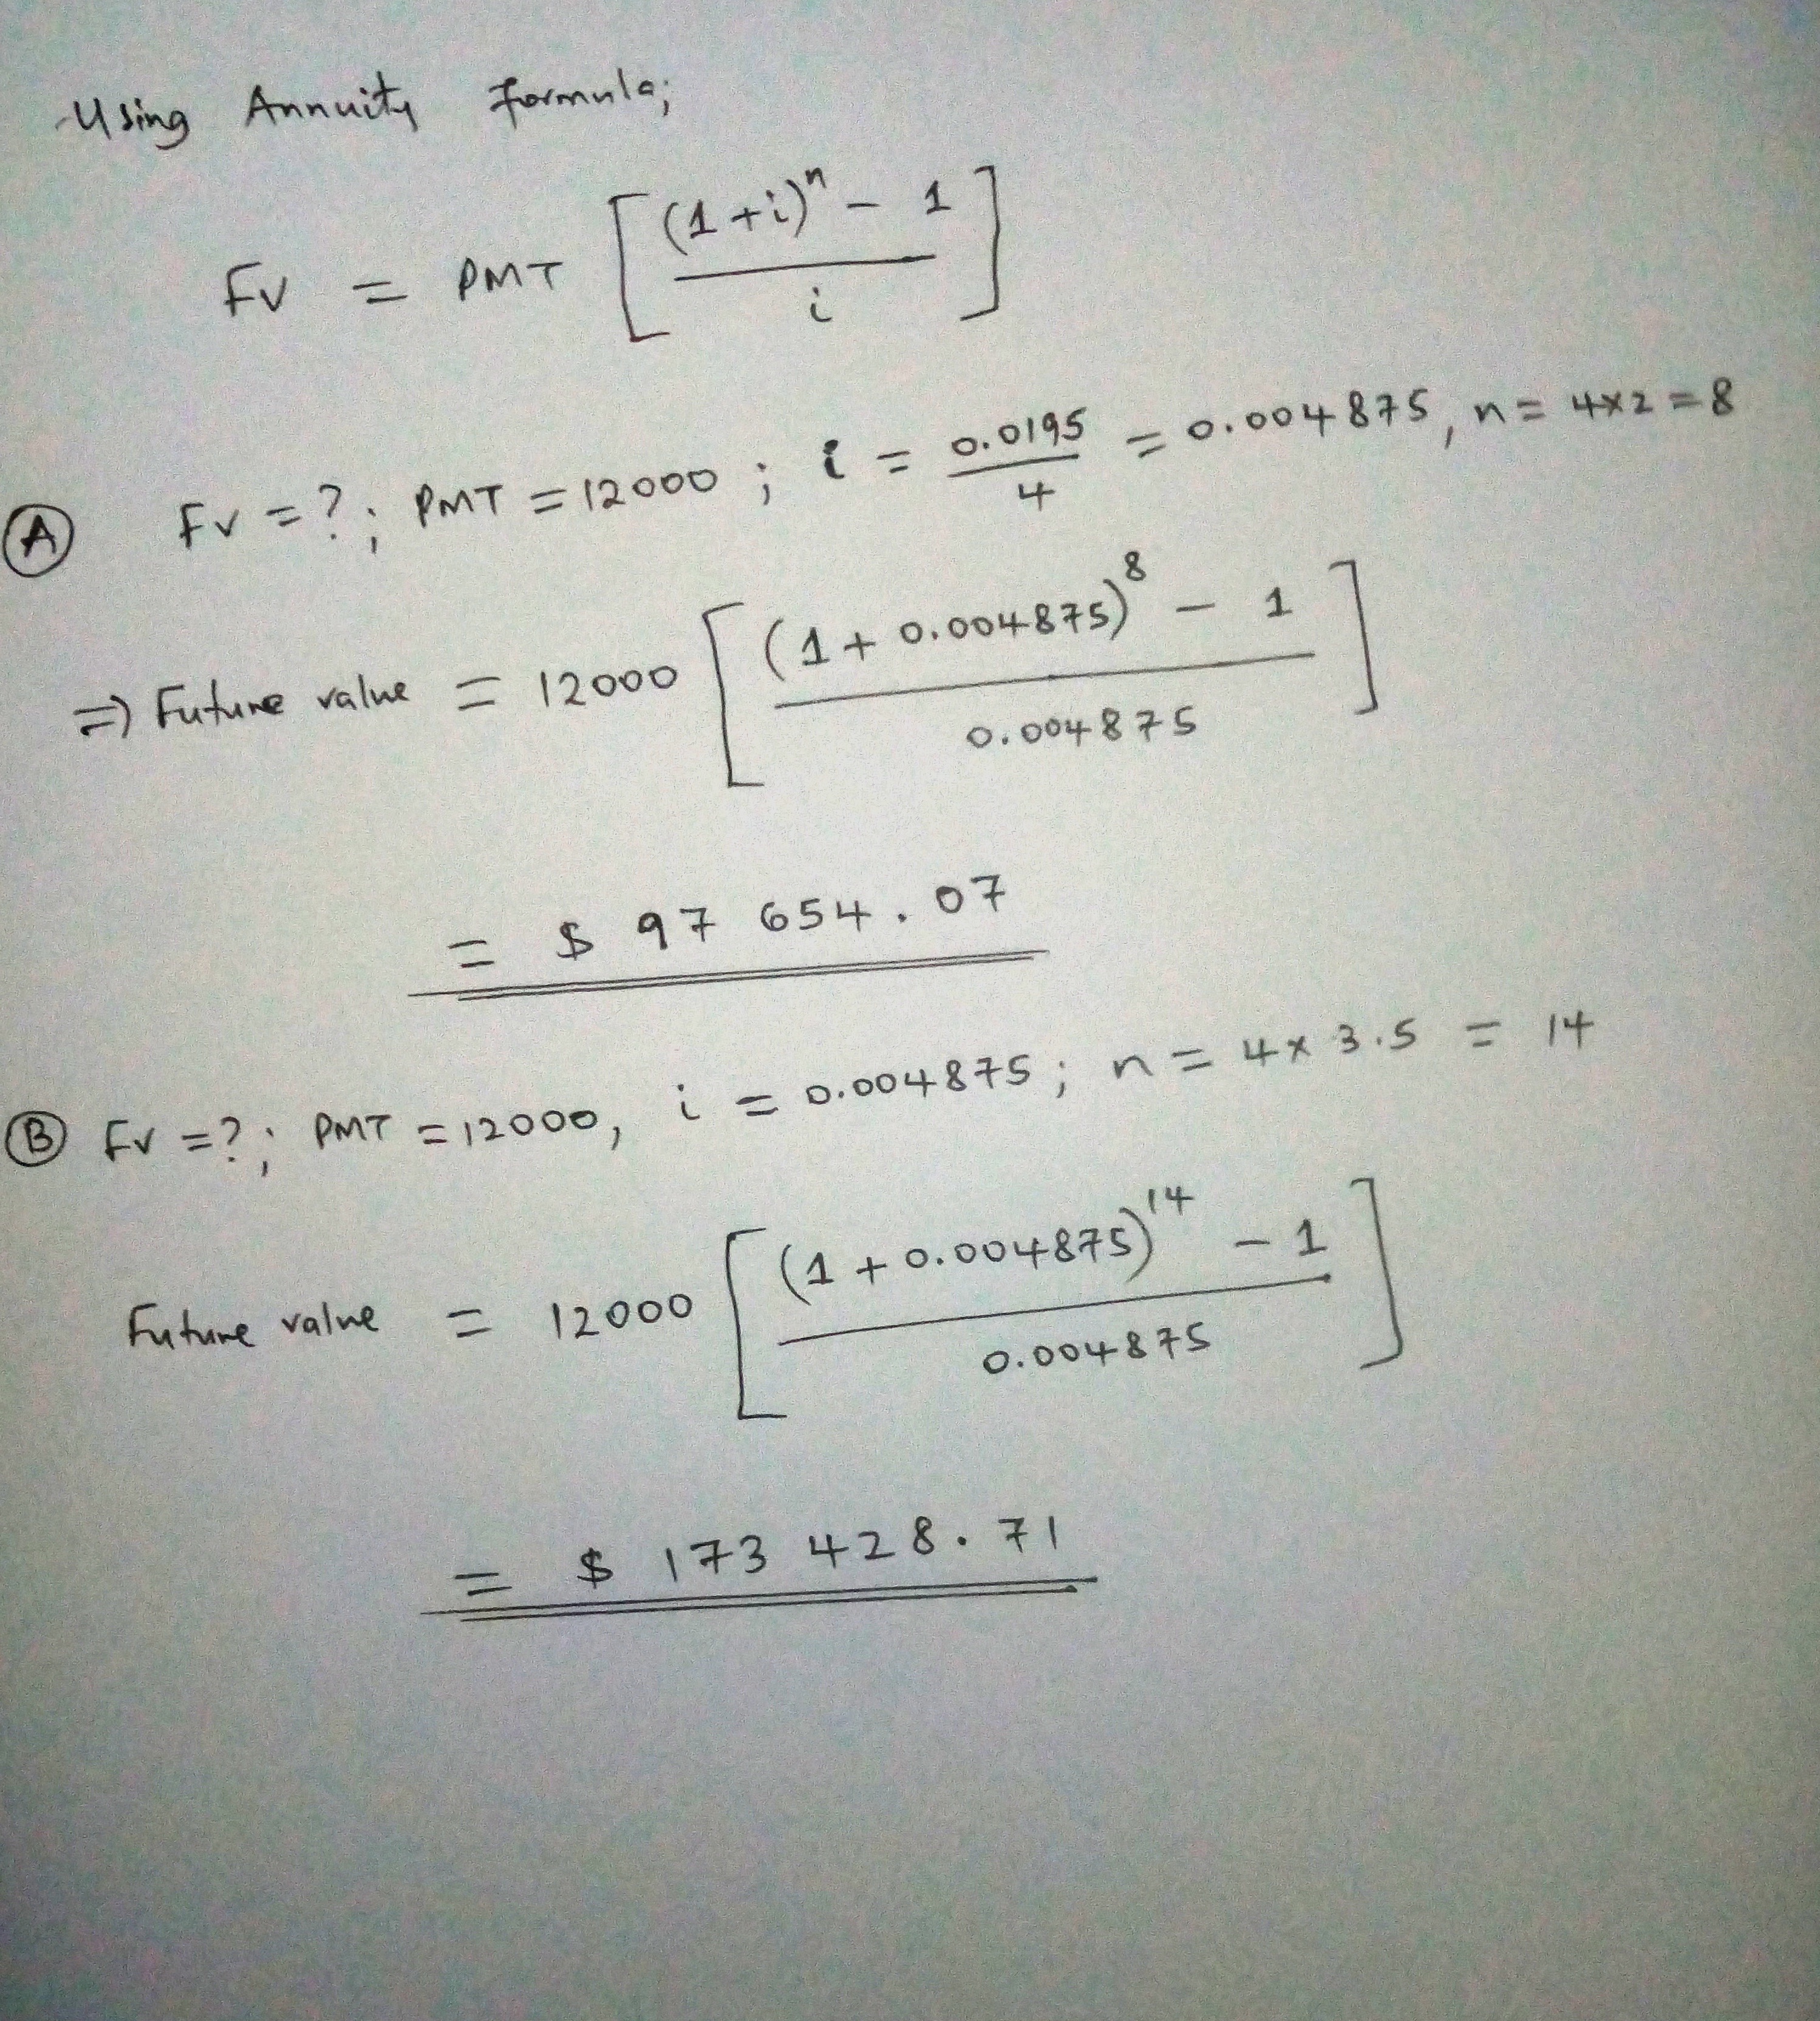 Using Annuity formula;
FV = PMT [ (1+i)^n - 1 / i ]
(A) FV = ? ; PMT = 12000 ; i = 0.0195 / 4 = 0.004875, n = 4×2 = 8
=> Future value = 12000 [ (1 + 0.004875)^8 - 1 / 0.004875 ]
= $ 97 654.07
(B) FV = ? ; PMT = 12000, i = 0.004875 ; n = 4 × 3.5 = 14
Future value = 12000 [ (1 + 0.004875)^14 - 1 / 0.004875 ]
= $ 173 428.71